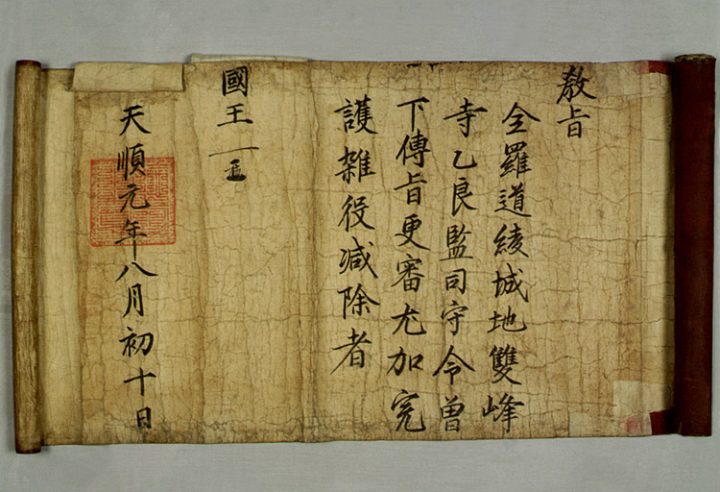 教旨
全羅道綾城地雙峰
寺乙良監司守令曽
下傳旨更審尤加完
護雜役减除者
國王
天順元年八月初十日